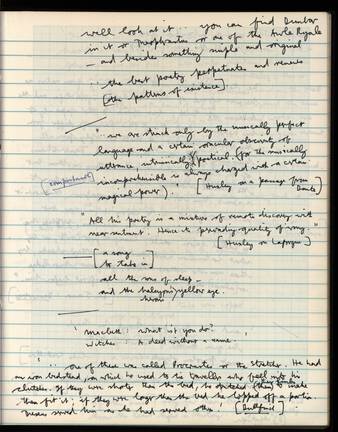 well look at it .. you can find Dunbar
in it or Theophrastus or one of the
— and besides something simple and original
.. the best poetry perpetuates and renews
[the patterns of existence]
" we are struck only by the musically perfect
language and a certain oracular obscurity of
utterance, intrinsically poetical (for the musically
incomprehensible is always charged with a certain
magical power)." [Huxley on a passage from
Dante]
[important]
"All his poetry is a mixture of remote discovery with
near sentiment. Hence its pervading quality of irony."
[Huxley on Laforgue]
[a song
to take in]
all the sons of sleep —
and the halcyon's yellow eye.
Macbeth : what is't you do?
witches : A deed without a name.
'.. one of these was called Procrustes or the Stretcher. He had
an iron bedstead, on which he used to tie travellers who fell into his
clutches. If they were shorter than the bed, he stretched their limbs to make
them fit it; if they were longer than the bed he lopped off a portion.
Theseus served him as he had served others. [Bullfinch]